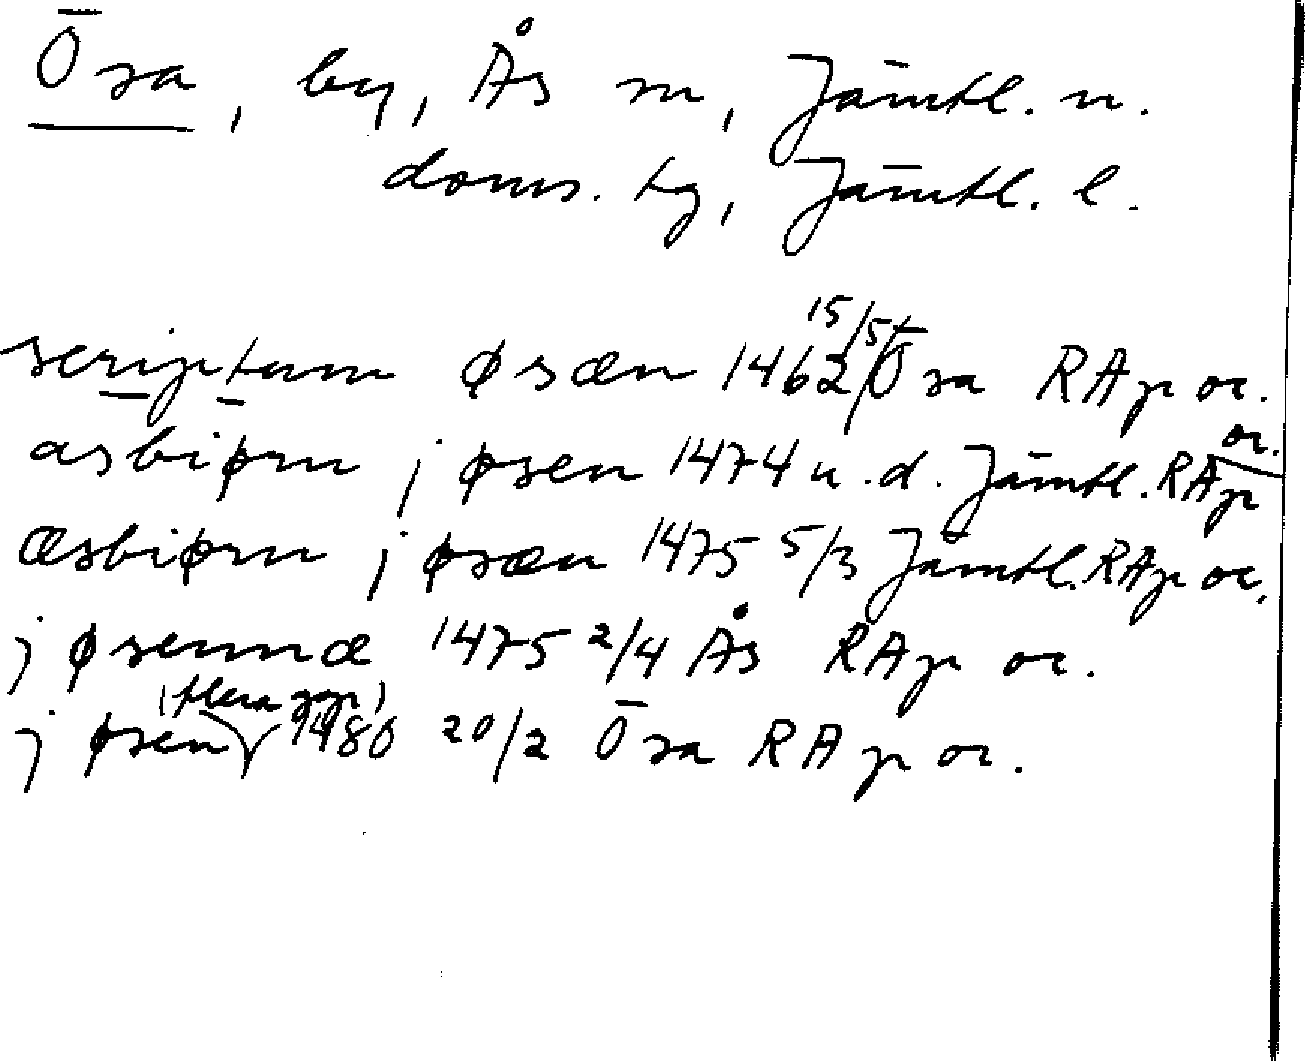 Ösa, by, Ås sn, Jämtl. n.
doms. tg, Jämtl. l.
scriptum øsæn 1462 15/5 Ösa RAp or.
asbiørn j øsen 1474 u.d. Jämtl. RAp or.
æsbiørn j øsæn 1475 5/3 Jämtl. RAp or.
j øsennæ 1475 2/4 Ås RAp or.
j øsen (flera ggr) 1480 20/2 Ösa RAp or.